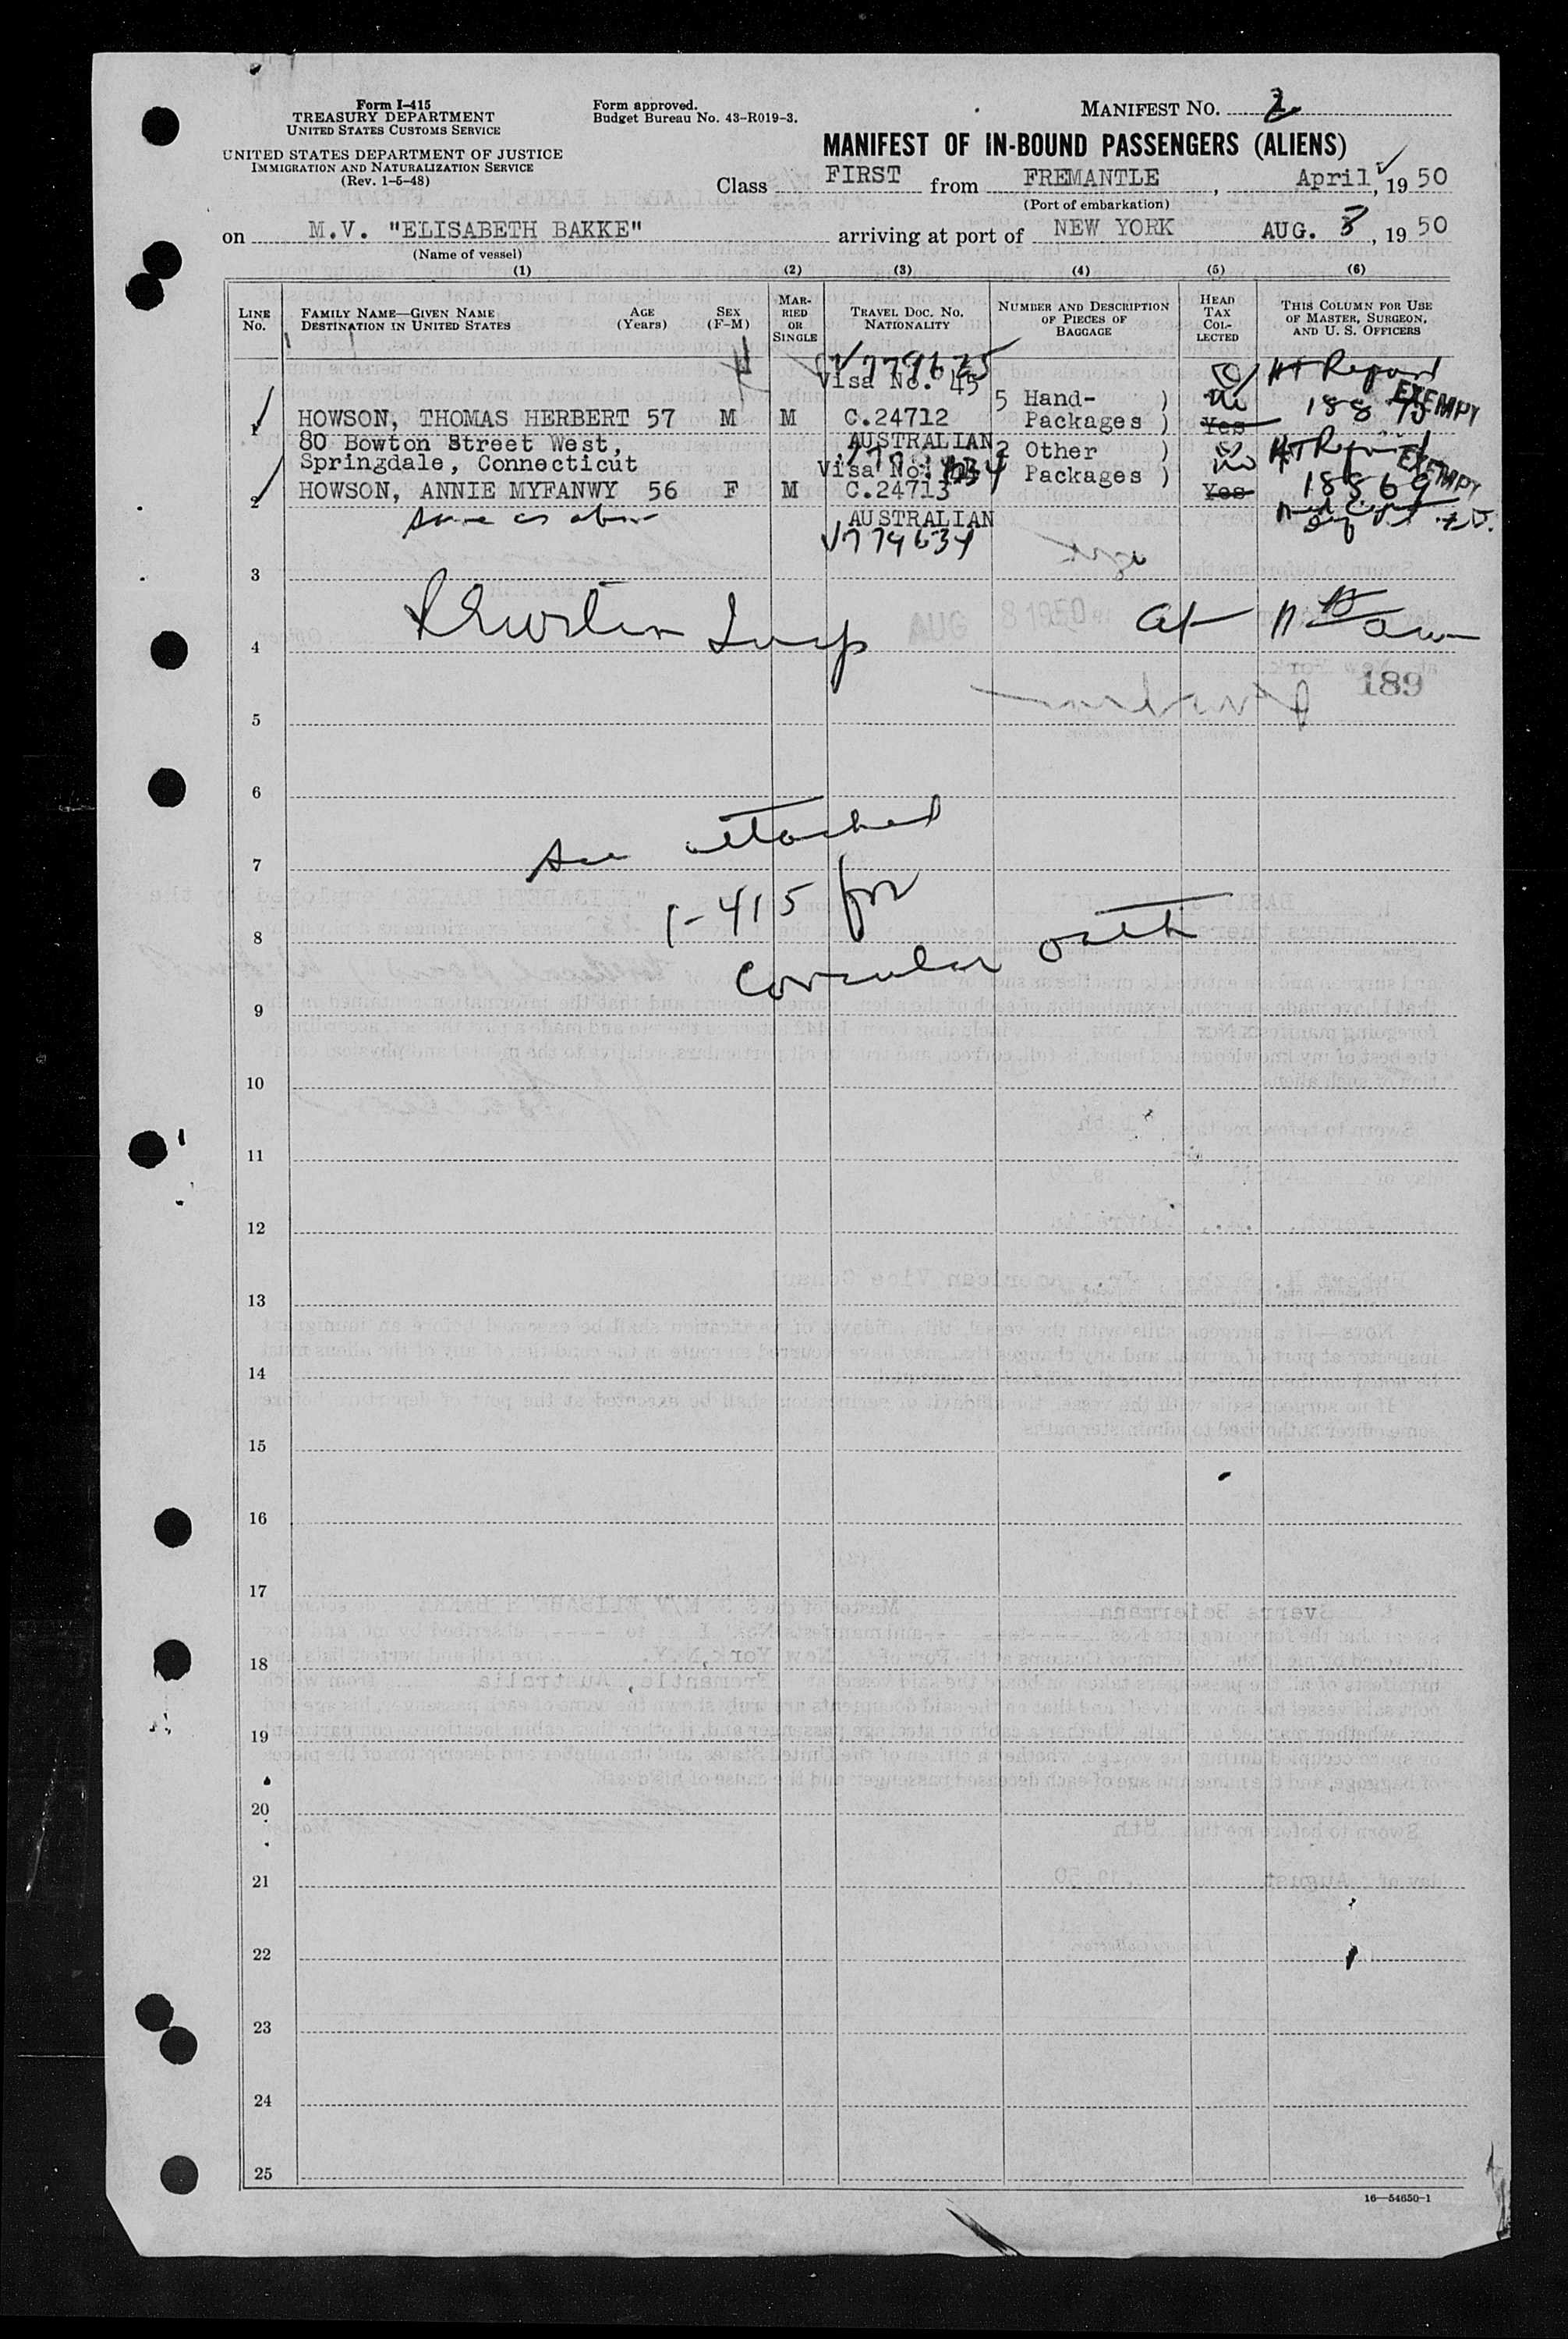 Form I-415
TREASURY DEPARTMENT
UNITED STATES CUSTOMS SERVICE
UNITED STATES DEPARTMENT OF JUSTICE
IMMIGRATION AND NATURALIZATION SERVICE
(Rev. 1-5-48)
Form approved.
Budget Bureau No. 43-R019-3.
MANIFEST NO. 2
MANIFEST OF IN-BOUND PASSENGERS (ALIENS)
Class FIRST from FREMANTLE, April, 19 50
(Port of embarkation)
on M.V. "ELISABETH BAKKE" arriving at port of NEW YORK AUG. 8, 19 50
(Name of vessel)
(1) (2) (3) (4) (5) (6)
LINE No. FAMILY NAME—GIVEN NAME DESTINATION IN UNITED STATES AGE (Years) SEX (F-M) MARRIED OR SINGLE TRAVEL DOC. NO. NATIONALITY NUMBER AND DESCRIPTION OF PIECES OF BAGGAGE HEAD TAX COLLECTED THIS COLUMN FOR USE OF MASTER, SURGEON, AND U. S. OFFICERS
V779635
Visa No. 45 HT Report
5 Hand- ) EXEMPT
1 HOWSON, THOMAS HERBERT 57 M M C.24712 Packages ) Yes 18870
80 Bowton Street West, AUSTRALIAN 2 Other ) HT Report
Springdale, Connecticut Visa No. Packages ) EXEMPT
2 HOWSON, ANNIE MYFANWY 56 F M C.24713 Yes 18869
same as above AUSTRALIAN
V779634
3
4 Insp at
AUG 8 1950
189
5
6
7 see attached
8 I-415 for
9 consular oath
10
11
12
13
14
15
16
17
18
19
20
21
22
23
24
25
16—54650-1